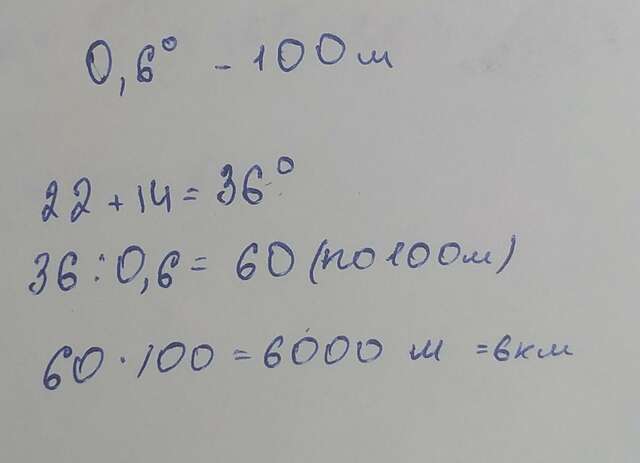 0,6° - 100м
22 + 14 = 36°
36 : 0,6 = 60 (по 100м)
60 · 100 = 6000 м = 6км